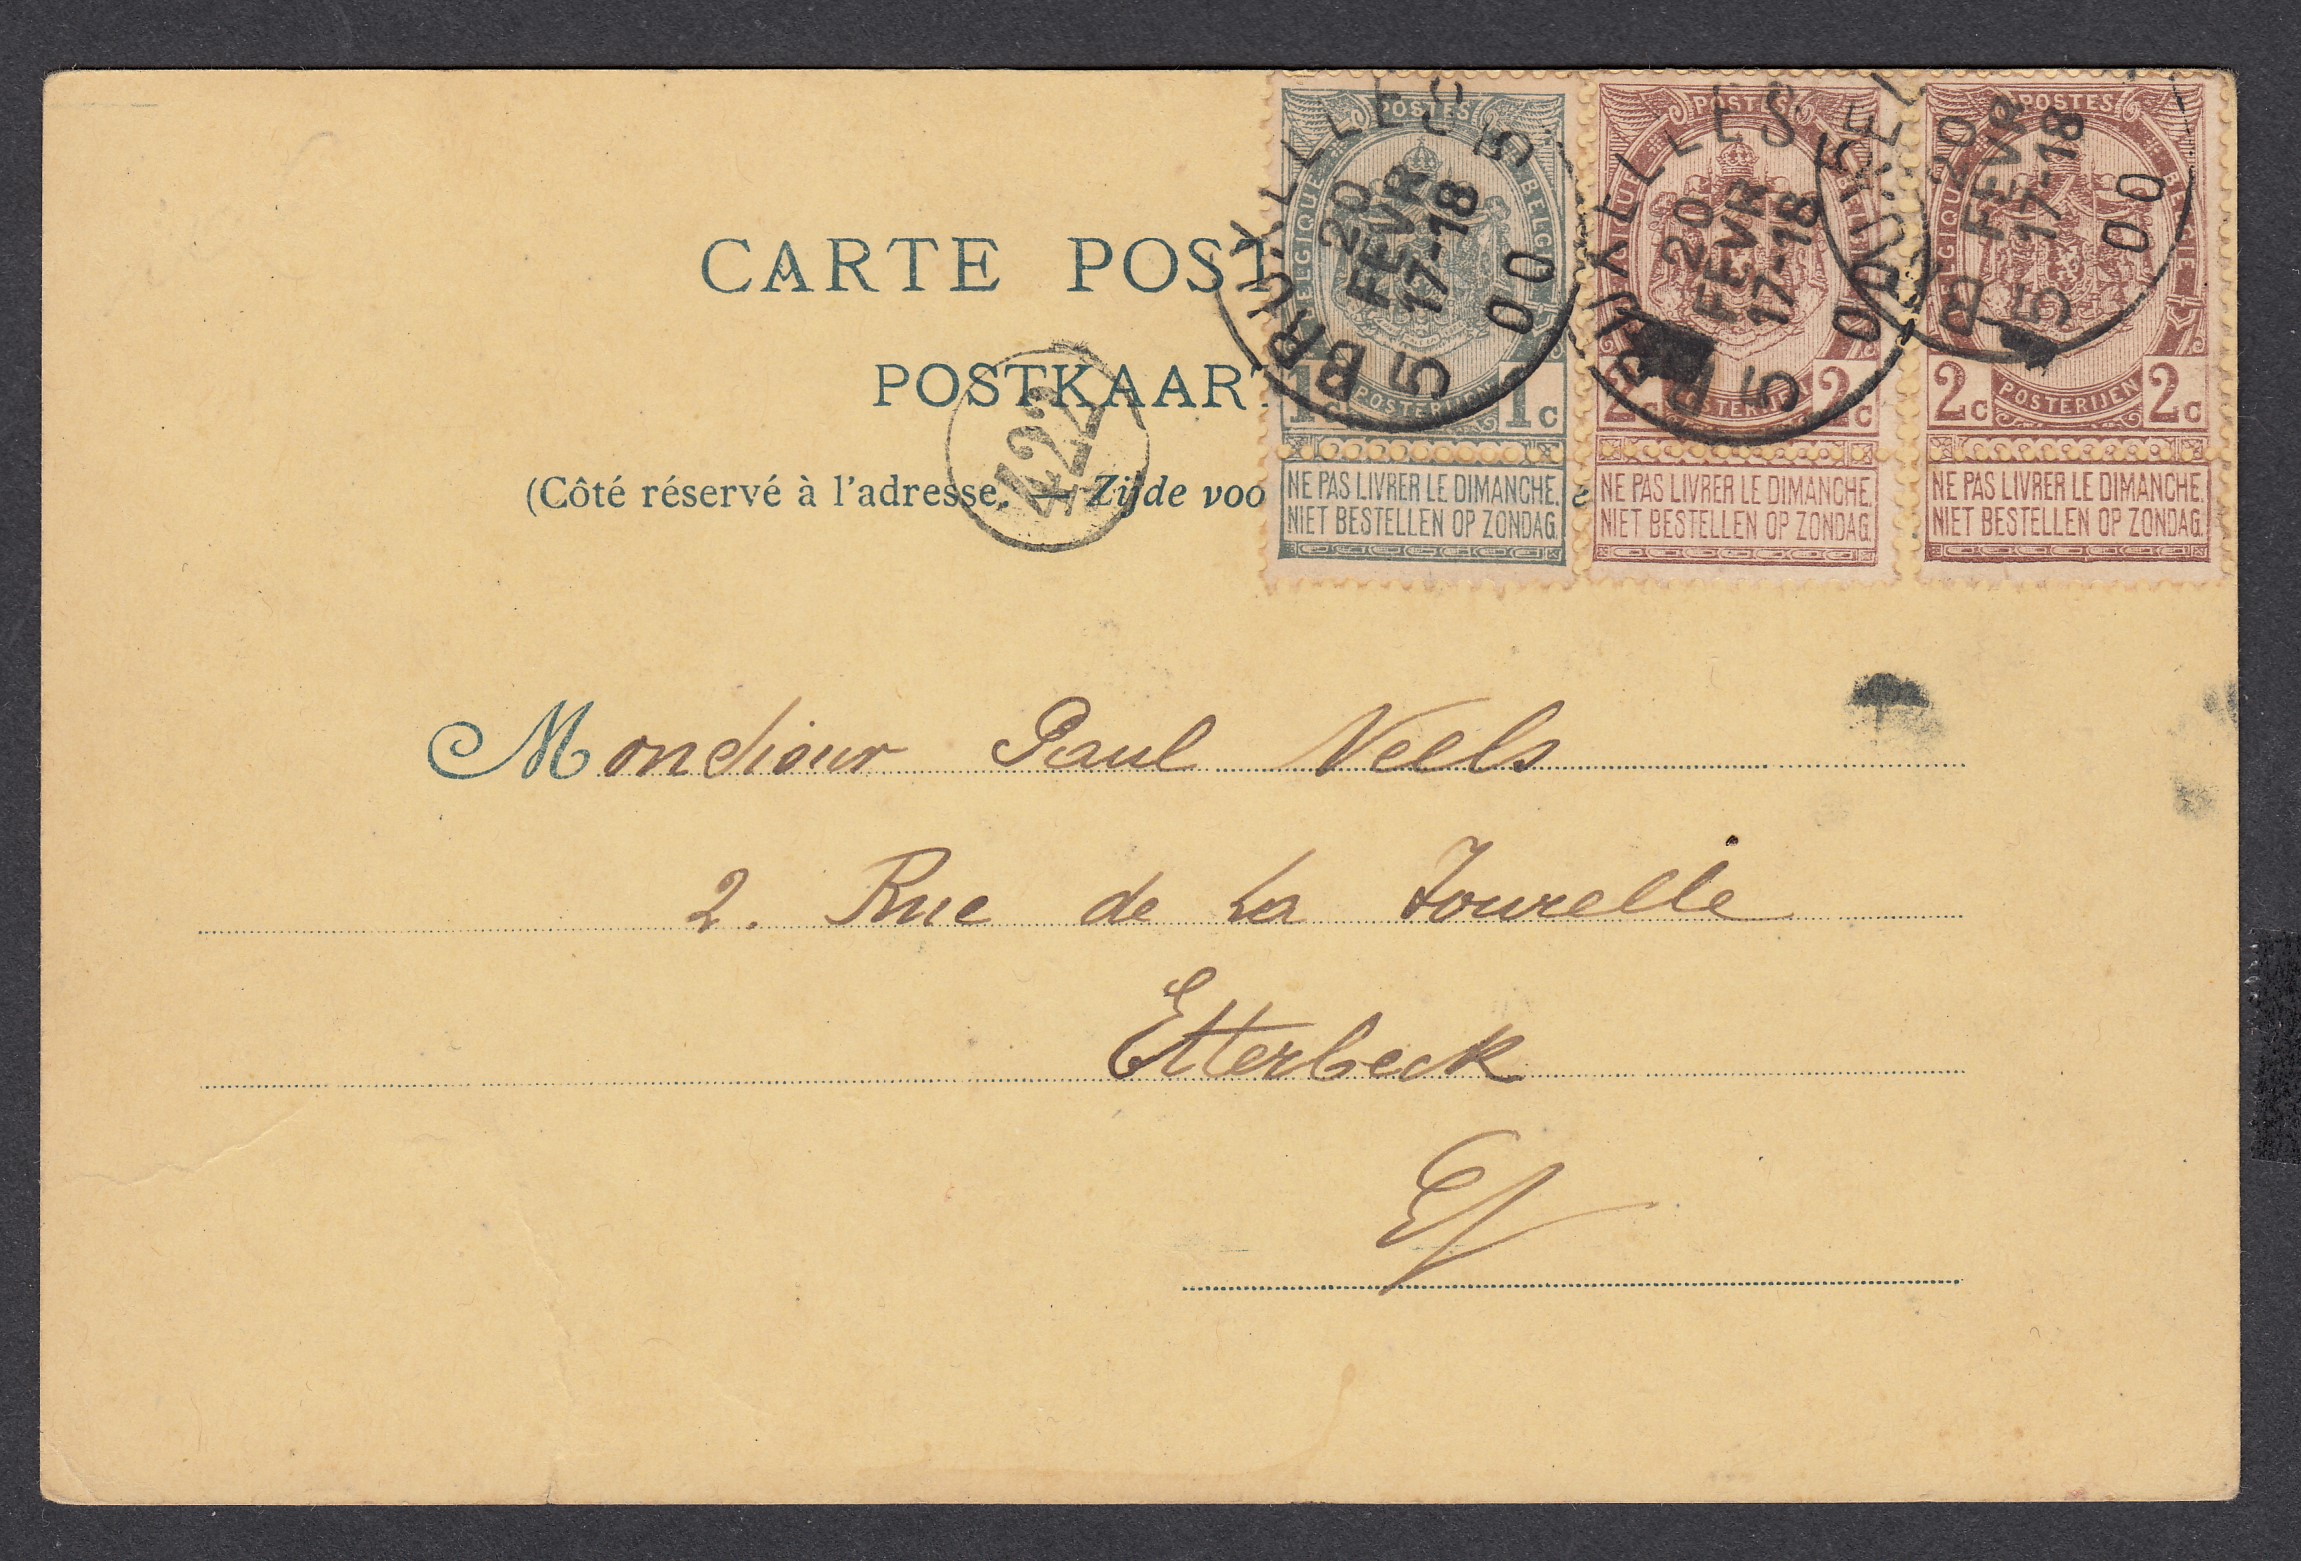 CARTE POST
POSTKAART
(Côté réservé à l'adresse. — Zijde voo
422
POSTES
BELGIQUE BELGIE
1c POSTERIJEN 1c
NE PAS LIVRER LE DIMANCHE.
NIET BESTELLEN OP ZONDAG.
POSTES
2c POSTERIJEN 2c
NE PAS LIVRER LE DIMANCHE.
NIET BESTELLEN OP ZONDAG.
POSTES
BELGIQUE BELGIE
2c POSTERIJEN 2c
NE PAS LIVRER LE DIMANCHE.
NIET BESTELLEN OP ZONDAG.
BRUXELLES 5
20
FEVR
17-18
00
5
BRUXELLES
20
FEVR
17-18
00
5
BRUXEL
20
FEVR
17-18
00
5
Monsieur Paul Neels
2. Rue de La Tourelle
Etterbeck